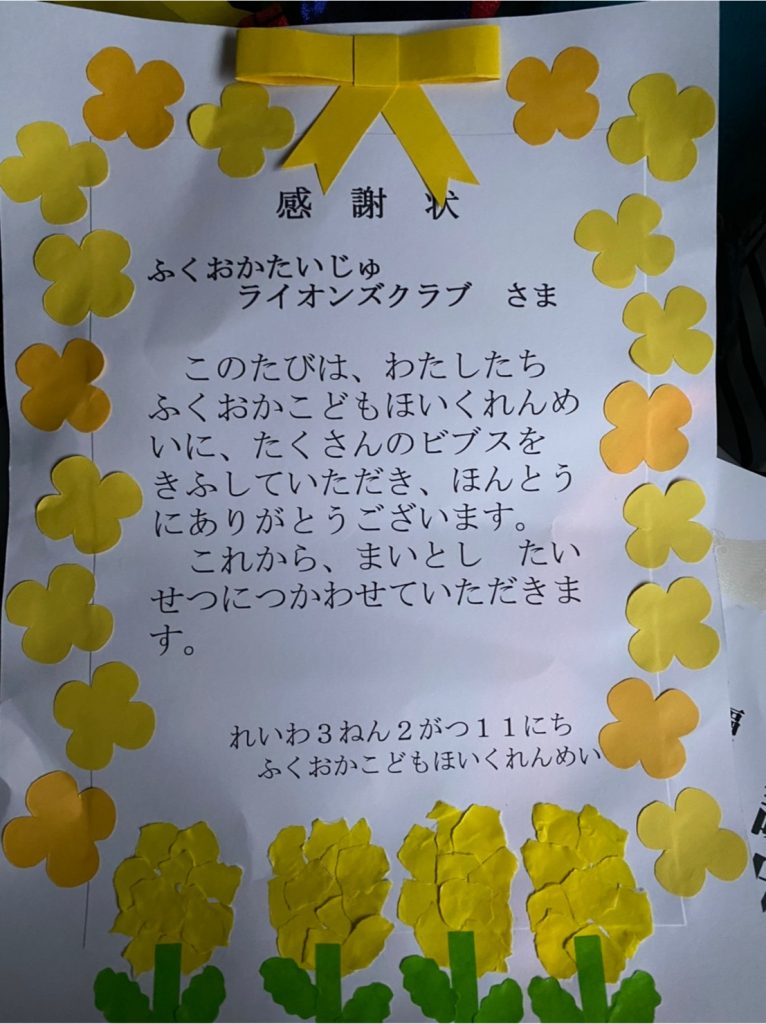 感 謝 状
ふくおかたいじゅ
ライオンズクラブ さま
このたびは、わたしたち
ふくおかこどもほいくれんめ
いに、たくさんのビブスを
きふしていただき、ほんとう
にありがとうございます。
これから、まいとし たい
せつにつかわせていただきま
す。
れいわ３ねん２がつ１１にち
ふくおかこどもほいくれんめい